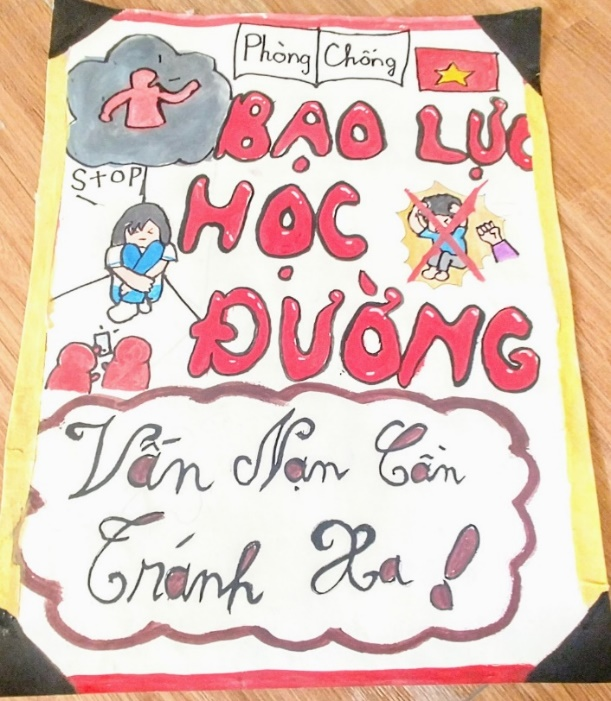 Phòng Chống
BẠO LỰC
STOP
HỌC
ĐƯỜNG
Vấn Nạn Cần
Tránh Xa !